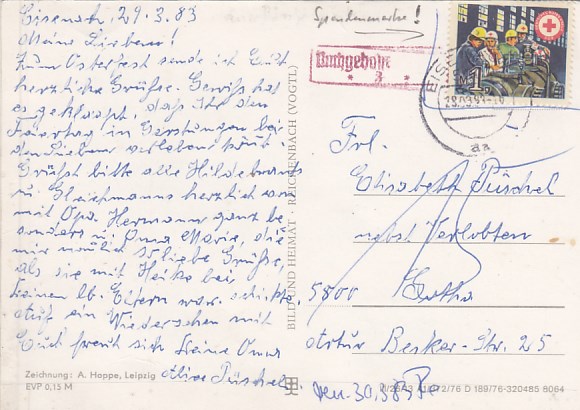 Eisenach, 29.3.83
Meine Lieben!
Zum Osterfest sende ich Euch
herzliche Grüße. Gewiß hat
es geklappt, daß Ihr den
Feiertag in Gerstungen bei
den Lieben verleben könnt.
Grüßt bitte alle Hildebrands
u. Gleichmanns herzlich von
mit Opa Hermann ganz be-
sonders u. Oma Marie, die
mir neulich so liebe Grüße,
als sie mit Heiko bei
Deinen lb. Eltern war, schickte.
Auf ein Wiedersehen mit
Euch freut sich Deine Oma
Püschel.
Zeichnung: A. Hoppe, Leipzig
EVP 0,15 M
BILD UND HEIMAT REICHENBACH (VOGTL)
Spendenmarke!
Nachgebühr
3
EISENACH
aa
Frl.
Elisabeth Püschel
nebst Verlobten
5800 Gotha
Artur Becker-Str. 25
30.3.83
2/76 D 189/76-320485 8064